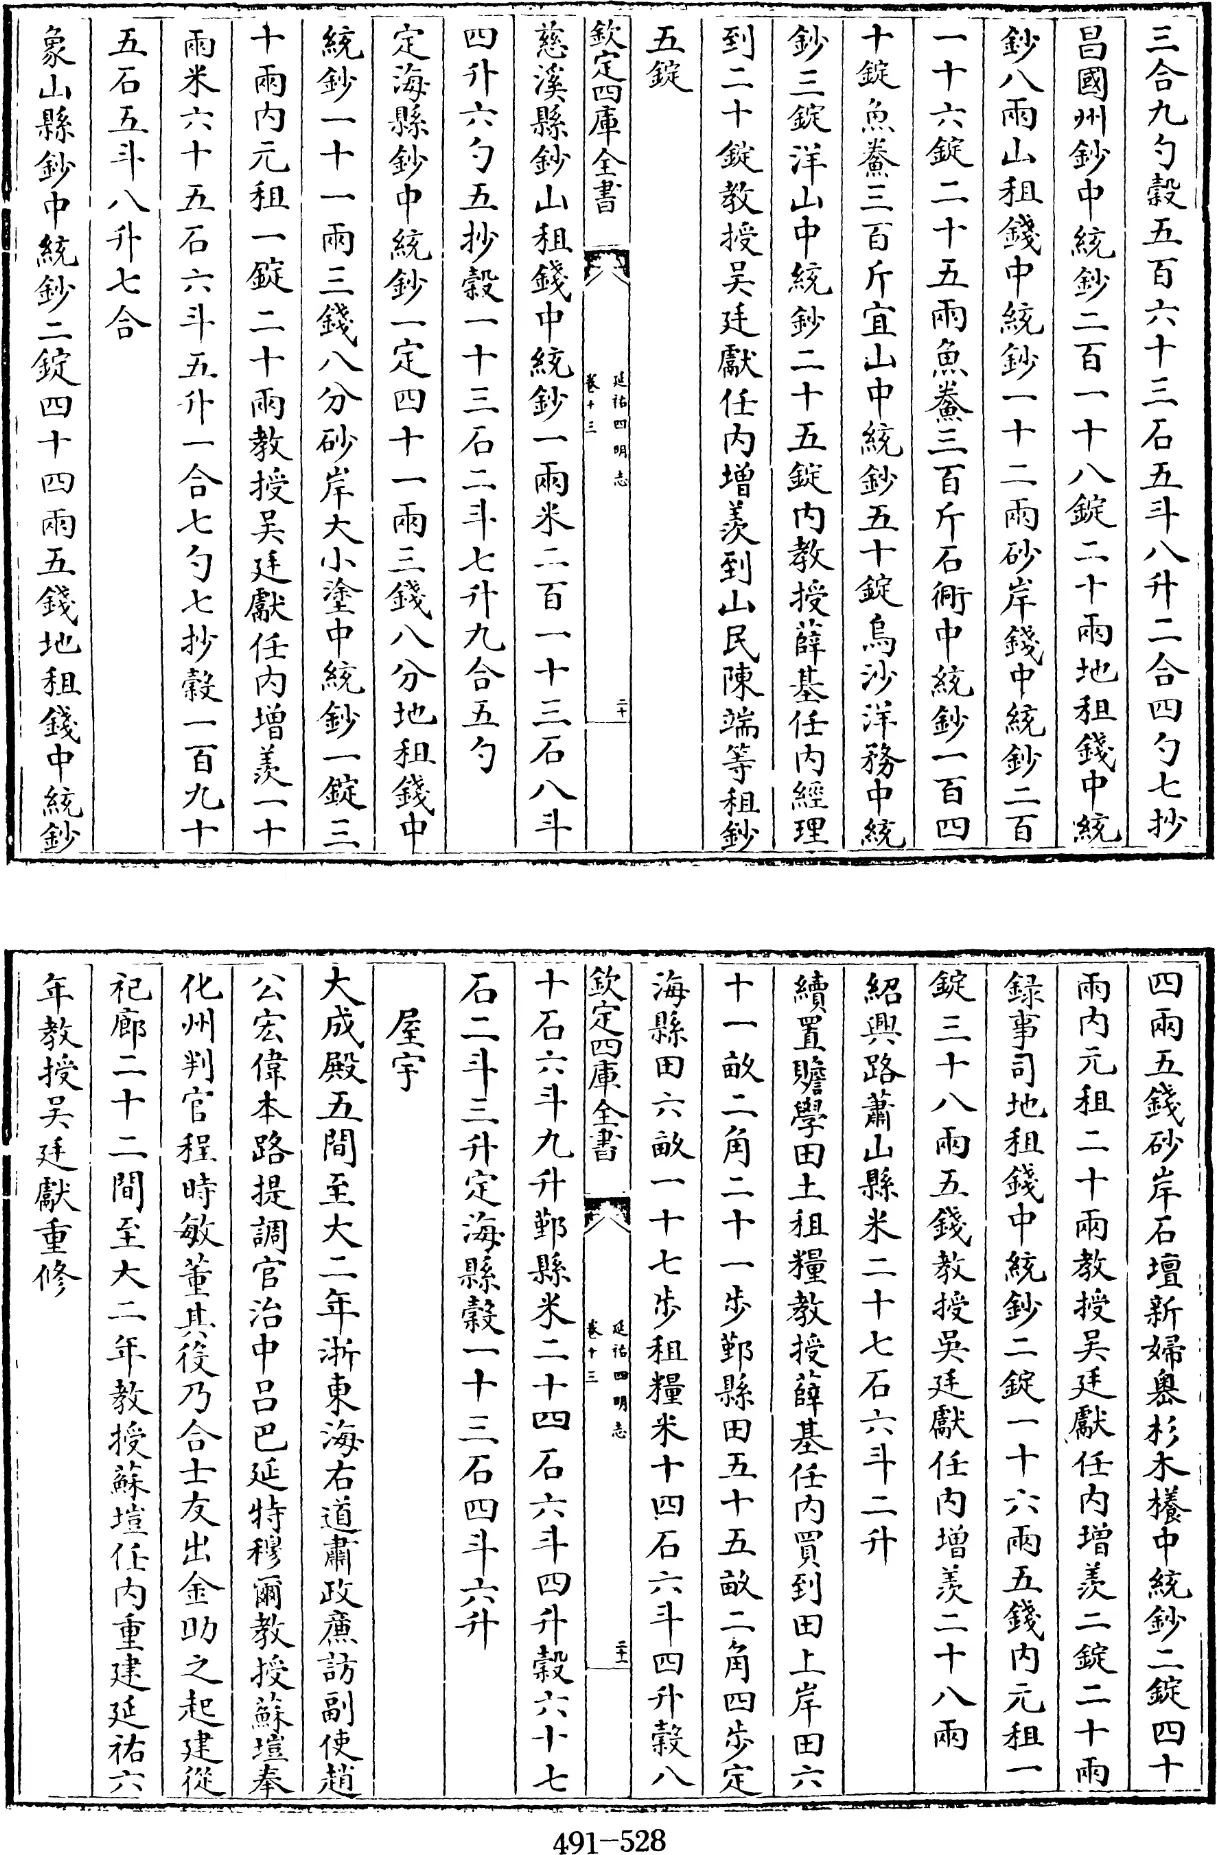 三合九勺穀五百六十三石五斗八升二合四勺七抄
昌國州鈔中統鈔二百一十八錠二十兩地租錢中統
鈔八兩山租錢中統鈔一十二兩砂岸錢中統鈔二百
一十六錠二十五兩魚鮝三百斤石衕中統鈔一百四
十錠魚鮝三百斤宜山中統鈔五十錠烏沙洋務中統
鈔三錠洋山中統鈔二十五錠内教授薛基任内經理
到二十錠教授吴廷獻任内增羨到山民陳端等租鈔
五錠
欽定四庫全書
延祐四明志
卷十三
二十
慈溪縣鈔山租錢中統鈔一兩米二百一十三石八斗
四升六勺五抄穀一十三石二斗七升九合五勺
定海縣鈔中統鈔一定四十一兩三錢八分地租錢中
統鈔一十一兩三錢八分砂岸大小塗中統鈔一錠三
十兩内元租一錠二十兩教授吴廷獻任内增羨一十
兩米六十五石六斗五升一合七勺七抄穀一百九十
五石五斗八升七合
象山縣鈔中統鈔二錠四十四兩五錢地租錢中統鈔
四兩五錢砂岸石壇新婦嶴杉木㰖中統鈔二錠四十
兩内元租二十兩教授吴廷獻任内增羨二錠二十兩
録事司地租錢中統鈔二錠一十六兩五錢内元租一
錠三十八兩五錢教授吳廷獻任内增羨二十八兩
紹興路蕭山縣米二十七石六斗二升
續置贍學田土租糧教授薛基任内買到田上岸田六
十一畝二角二十一步鄞縣田五十五畝二角四步定
海縣田六畝一十七步租糧米十四石六斗四升穀八
欽定四庫全書
延祐四明志
卷十三
二十一
十石六斗九升鄞縣米二十四石六斗四升穀六十七
石二斗三升定海縣穀一十三石四斗六升
屋宇
大成殿五間至大二年浙東海右道肅政亷訪副使趙
公宏偉本路提調官治中吕巴延特穆爾教授蘇塏奉
化州判官程時敏董其役乃合士友出金助之起建從
祀廊二十二間至大二年教授蘇塏任内重建延祐六
年教授吴廷獻重修
491-528